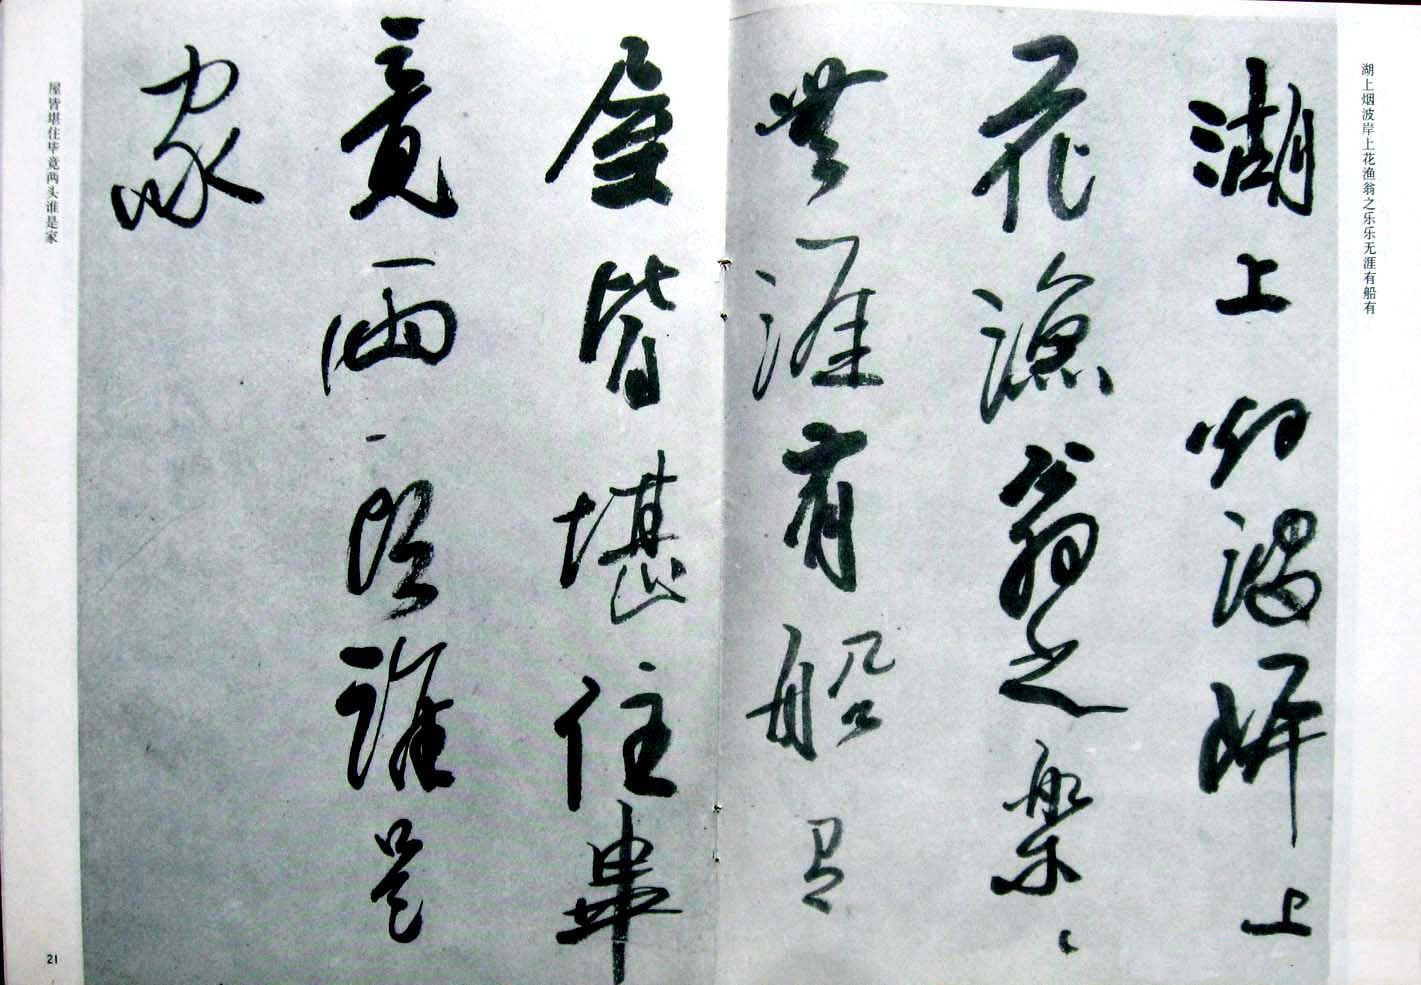 湖上烟波岸上花渔翁之乐乐无涯有船有
湖上烟波岸上
花漁翁之樂〻
無涯有船有
屋皆堪住畢
竟兩頭誰是
家
屋皆堪住毕竟两头谁是家
21